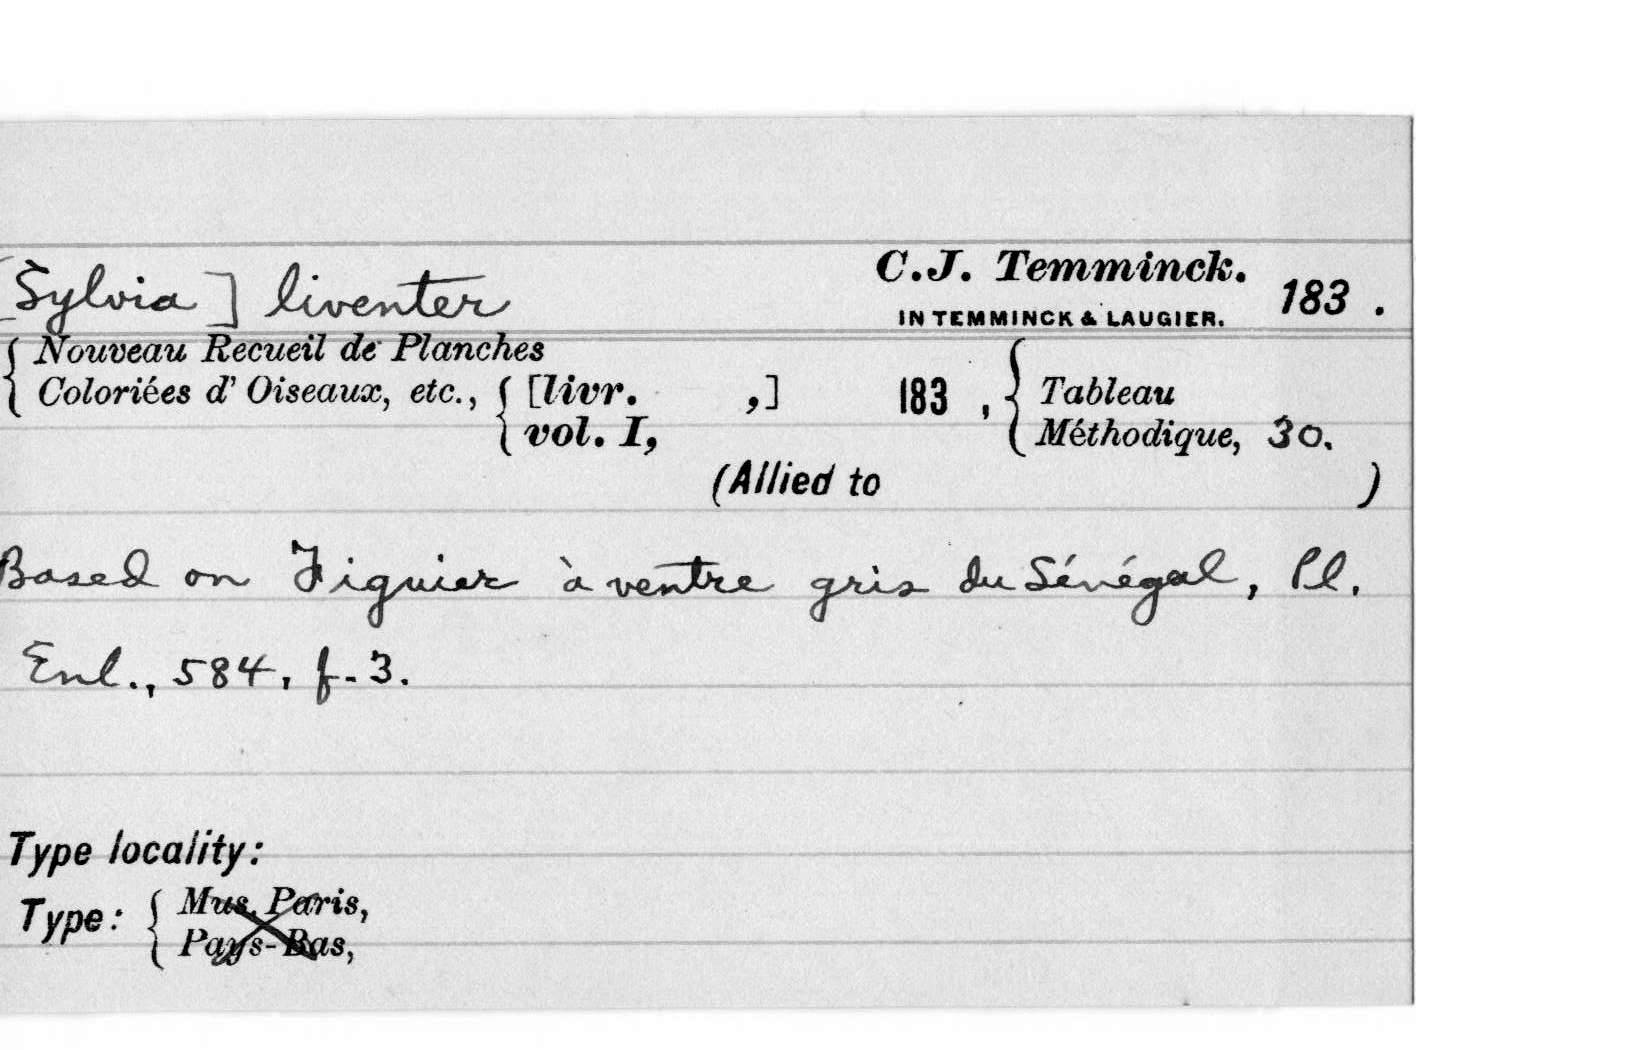 [Sylvia] liventer C.J. Temminck. 183 .
IN TEMMINCK & LAUGIER.
Nouveau Recueil de Planches
Coloriées d' Oiseaux, etc., [livr. ,] 183 , Tableau
vol. I, Méthodique, 30.
(Allied to )
Based on Figuier à ventre gris du Sénégal, Pl.
Enl., 584, f. 3.
Type locality:
Type: Mus. Paris,
Pays-Bas,